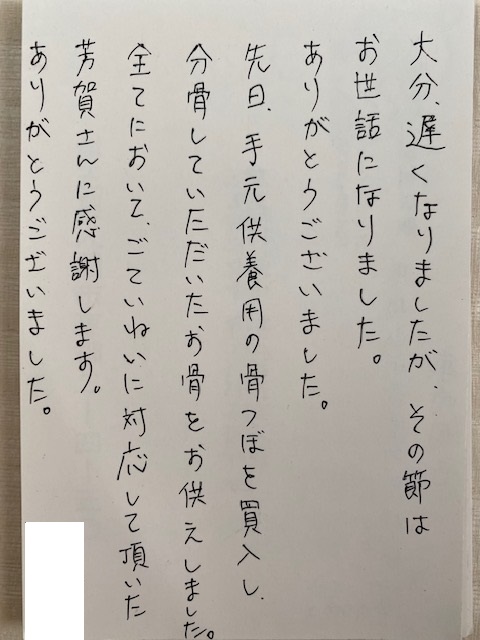 大分、遅くなりましたが、その節は
お世話になりました。
ありがとうございました。
先日、手元供養用の骨つぼを買入し、
分骨していただいたお骨をお供えしました。
全てにおいて、ごていねいに対応して頂いた
芳賀さんに感謝します。
ありがとうございました。